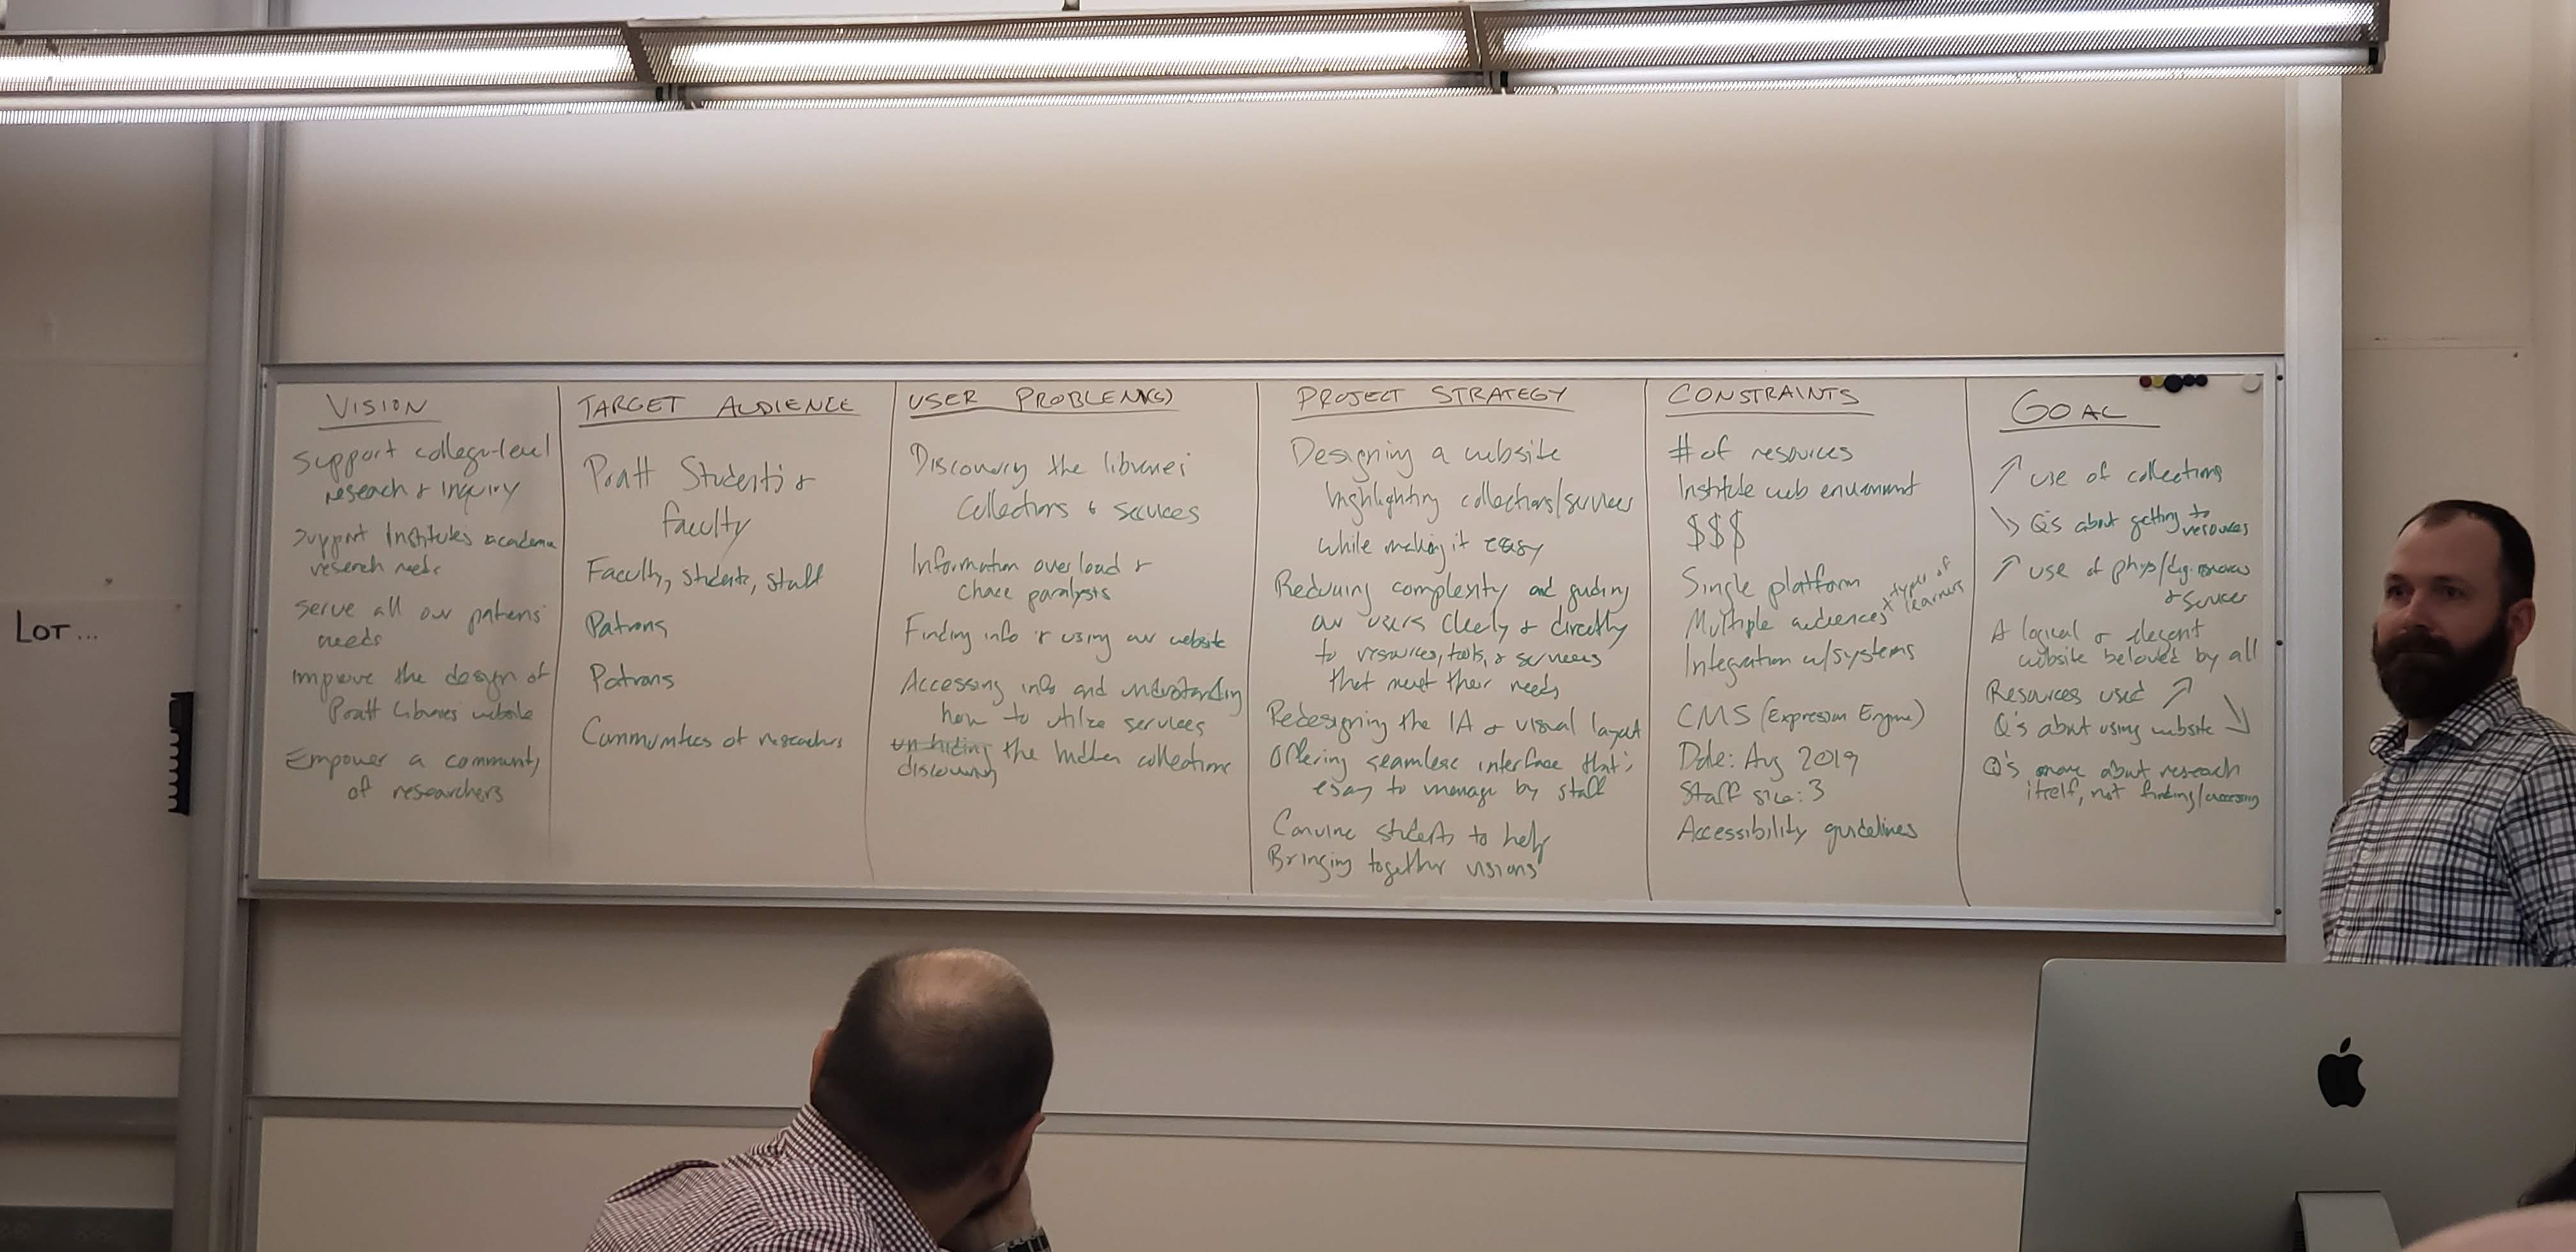 LOT...
VISION
Support college-level
reseach & inquiry
Support Institute's academic
reserch needs
Serve all our patrons'
needs
Improve the design of
Pratt Libraries website
Empower a community
of researchers
TARGET AUDIENCE
Pratt Students &
faculty
Faculty, students, staff
Patrons
Patrons
Communities of reseachers
USER PROBLEM(S)
Discovery the libraries'
Collections & services
Information overload &
choice paralysis
Finding info & using our website
Accessing info and understanding
how to utilize services
un hiding the hidden collections
discovering
PROJECT STRATEGY
Designing a website
highlighting collections/services
while making it easy
Reducing complexity and guiding
our users clearly & directly
to resources, tools, & services
that meet their needs
Redesigning the IA & visual layout
Offering seamless interface that's
easy to manage by staff
Convine students to help
Bringing together visions
CONSTRAINTS
# of resources
Institute web enviornment
$$$
Single platform
Multiple audiences + types of
learners
Integration w/systems
CMS (Expression Engine)
Date: Aug 2019
Staff size: 3
Accessibility guidelines
GOAL
↗ use of collections
↘ Q's about getting to
resources
↗ use of phys/dig. resources
& services
A logical & elegant
website beloved by all
Resources used ↗
Q's about using website ↘
Q's more about reseach
itself, not finding/accessing